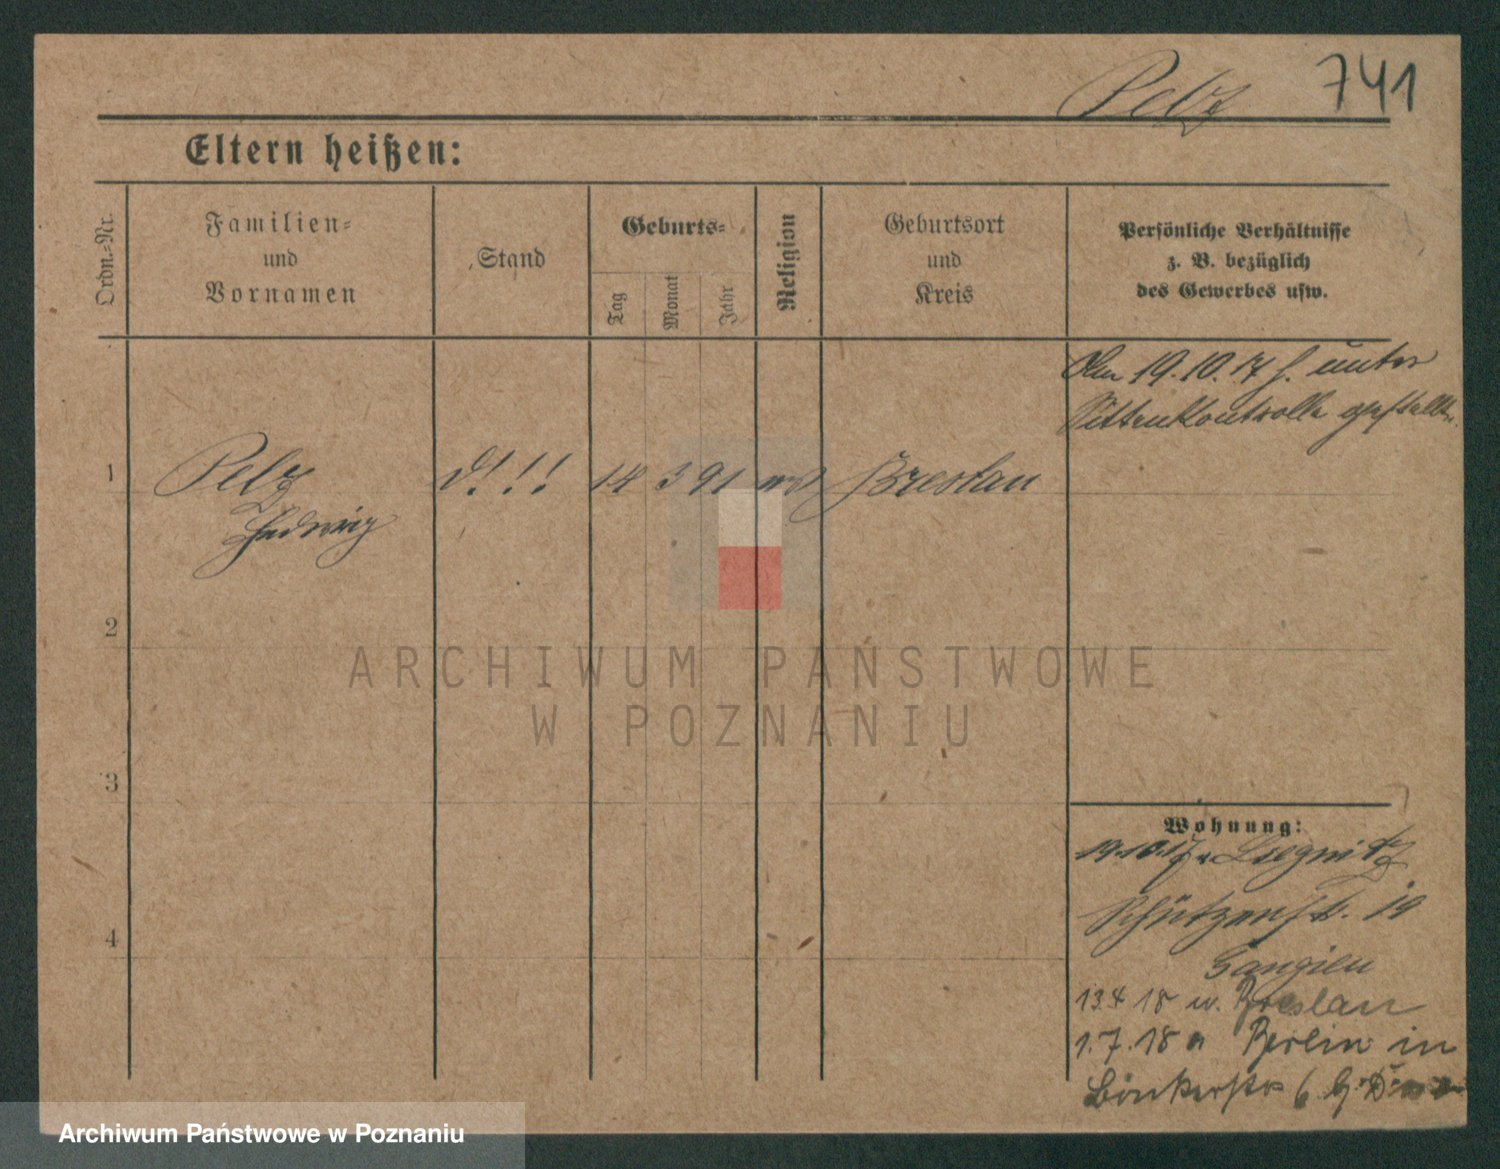 Pelz 741
Eltern heißen:
Ordn.-Nr.
Familien-
und
Vornamen
Stand
Geburts-
Tag
Monat
Jahr
Religion
Geburtsort
und
Kreis
Persönliche Verhältnisse
z. B. bezüglich
des Gewerbes usw.
Am 19.10.17 h. unter
Sittenkontrolle gestellt.
1 Pelz 14 3 91 Breslau
Hedwig
2
3
4
Wohnung:
19.10.17 v. Liegnitz
Schützenstr. 19
13.4 18 n. Breslau
1.7.18 a Berlin in
6 b.
ARCHIWUM PAŃSTWOWE
W POZNANIU
Archiwum Państwowe w Poznaniu